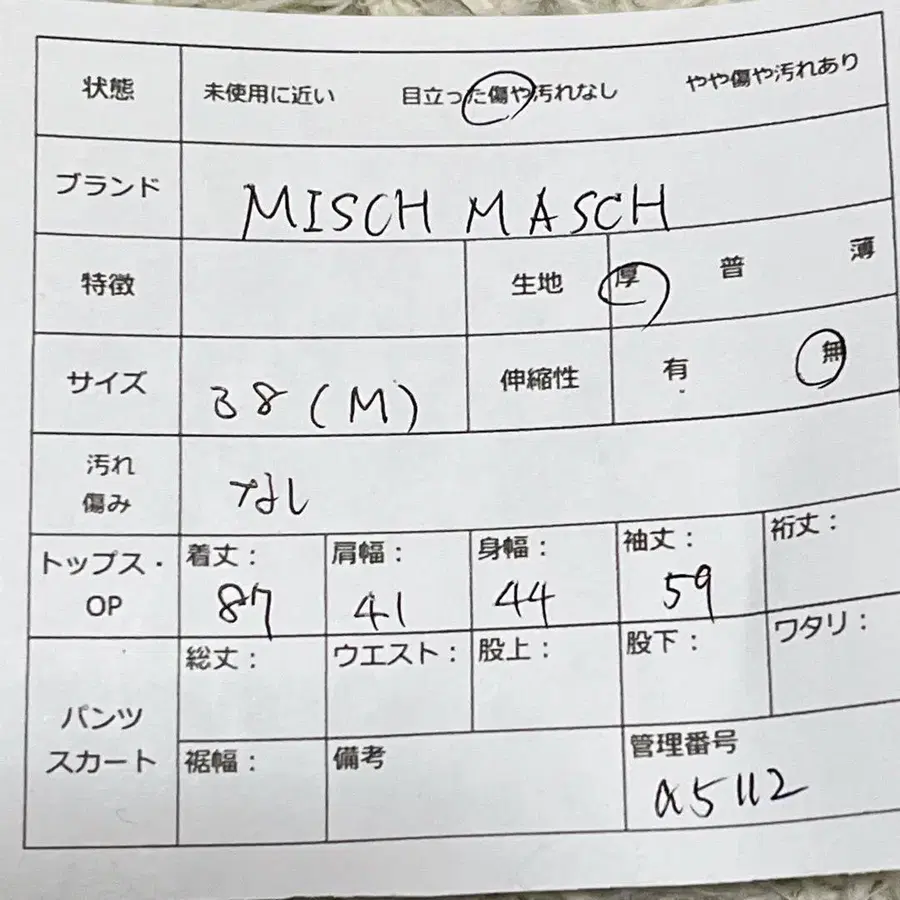 状態 未使用に近い 目立った傷や汚れなし やや傷や汚れあり
ブランド MISCH MASCH
特徴 生地 厚 普 薄
サイズ 38(M) 伸縮性 有 無
汚れ
傷み なし
トップス・
OP
着丈: 肩幅: 身幅: 袖丈: 裄丈:
87 41 44 59
パンツ
スカート
総丈: ウエスト: 股上: 股下: ワタリ:
裾幅: 備考 管理番号
α5112